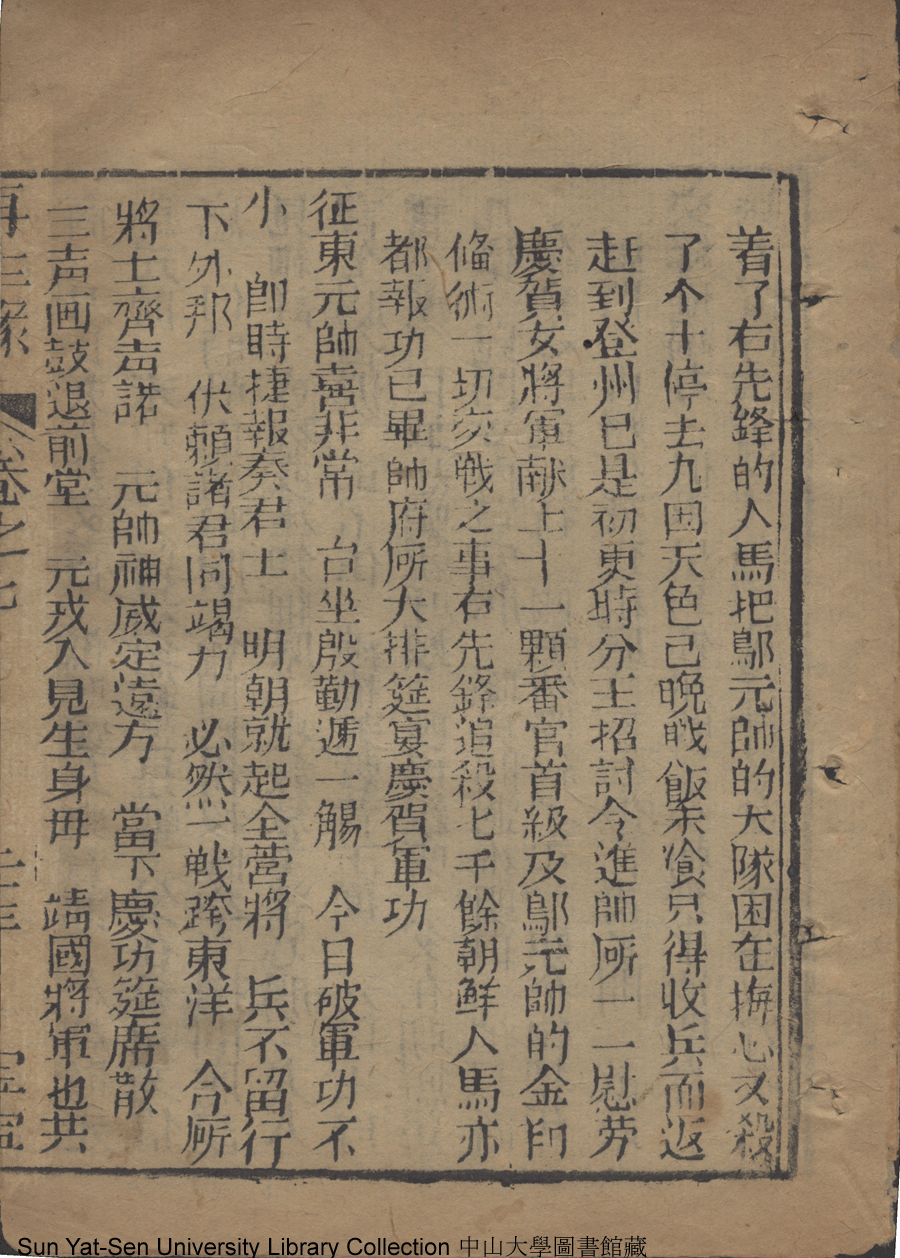 着了右先鋒的人馬把鄔元帥的大隊困在海心又殺
了个十停去九因天色已晚戰飯未飡只得收兵而返
赶到登州已是初更時分王招討令進帥所一一慰劳
慶賀女將軍献上十一顆番官首級及鄔元帥的金印
俻術一切交戰之事右先鋒追殺七千餘朝鮮人馬亦
都報功已畢帥府所大排筵宴慶賀軍功
征東元帥喜非常　台坐殷勤遞一觴　今日破軍功不
小　卽時捷報奏君王　明朝就起全營將　兵不留行
下外邦　伏賴諸君同竭力　必然一戰跨東洋　合所
將士齊声諾　元帥神威定遠方　當下慶功筵席散
三声画鼓退前堂　元戎入見生身母　靖國將軍也共
再生緣　卷之七
Sun Yat-Sen University Library Collection 中山大學圖書館藏